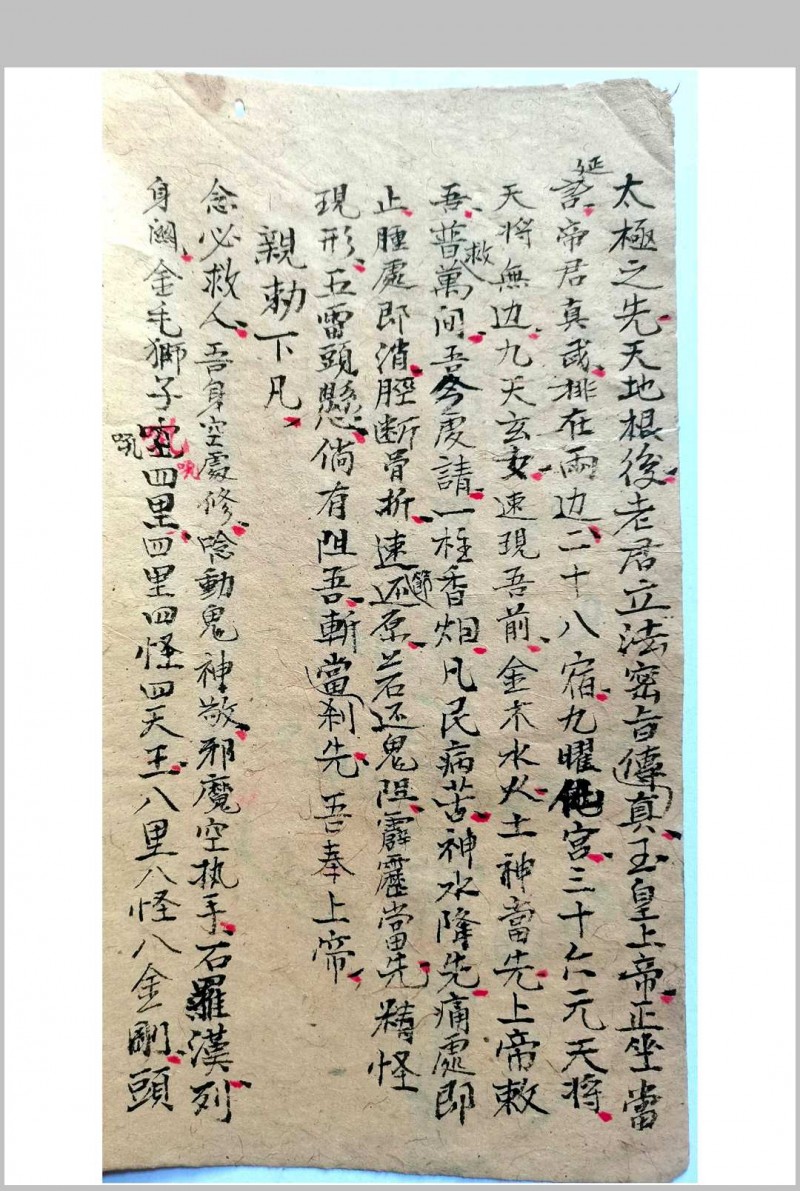 太極之先天地根後老君立法密旨傳真玉皇上帝正坐當
延
帝君真武排在兩边二十八宿九曜宮三十六元天将
天将無边九天玄女速現吾前金木水火土神當先上帝敕
吾普救萬间吾今虔請一柱香烟凡民病苦神水降先痛處即
止腫處即消脛断骨折速还原节若还鬼阻霹靂當先精怪
現形五雷頭懸倘有阻吾斬當刹先吾奉上帝
親勅下凡
念必救人吾身空處修唸動鬼神敬邪魔空执手石羅漢列
身金毛獅子吼四里四里四怪四天王八里八怪八金剛頭
吼